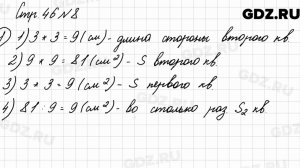 Стр. 46 №8
GDZ.RU
1) 1) 3 * 3 = 9 (см) - длина стороны второго кв.
2) 9 * 9 = 81 (см²) - S второго кв.
3) 3 * 3 = 9 (см²) - S первого кв.
4) 81 : 9 = 9 (см²) - во столько раз S₂ кв
GDZ.RU